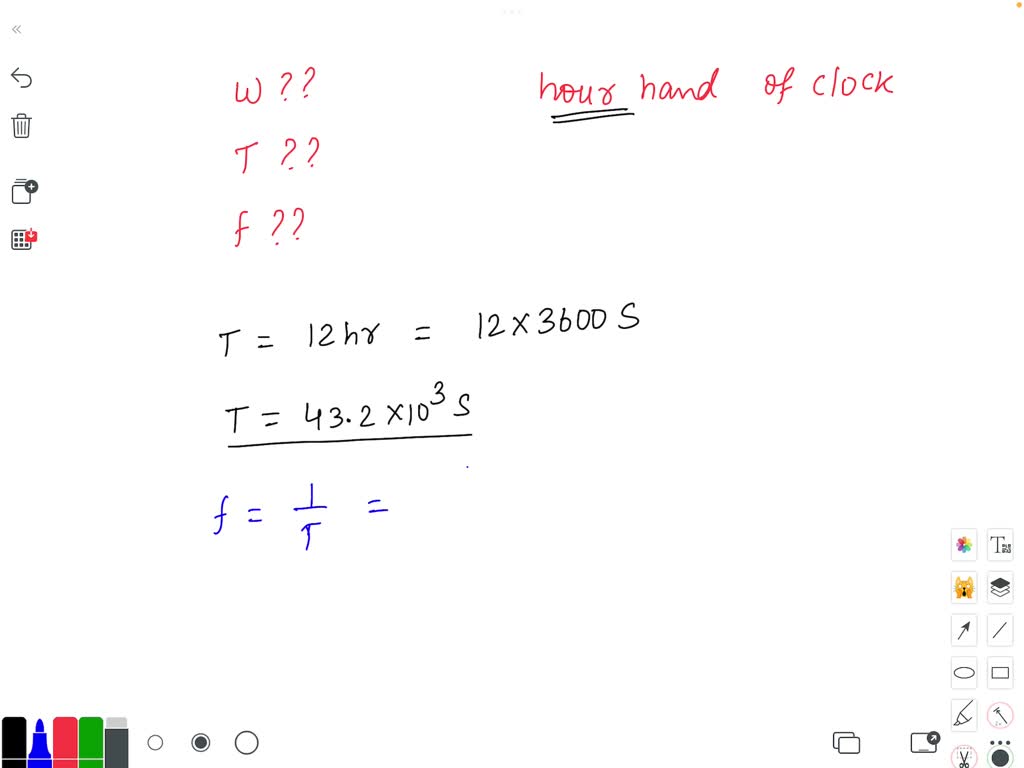 ω ?? hour hand of clock
T ??
f ??
T = 12hr = 12×3600 S
T = 43.2×10³ S
f = 1/T =